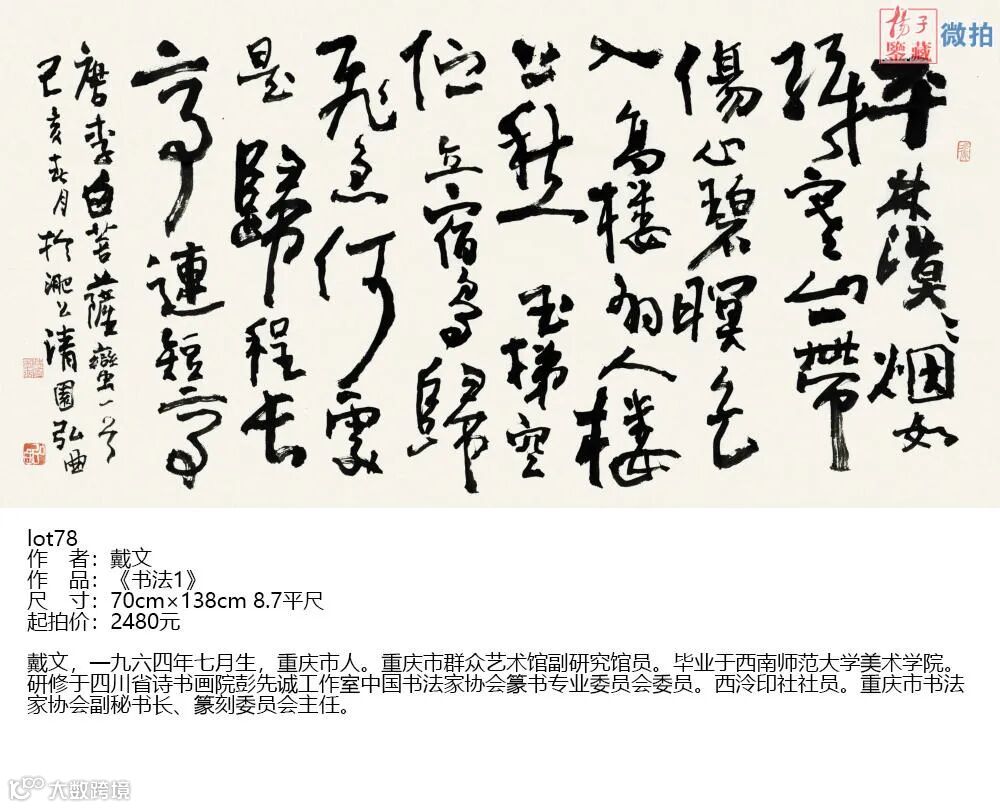 楊子
鑒藏
微拍
平林漠〻烟如
織寒山一帶
傷心碧暝色
入高樓有人樓
上愁玉梯空
佇立宿鳥歸
飛急何處
是歸程長
亭連短亭
唐李白菩薩蠻一首
己亥春月於淝上清園弘曲
lot78
作 者：戴文
作 品：《书法1》
尺 寸：70cm×138cm 8.7平尺
起拍价：2480元
戴文，一九六四年七月生，重庆市人。重庆市群众艺术馆副研究馆员。毕业于西南师范大学美术学院。
研修于四川省诗书画院彭先诚工作室中国书法家协会篆书专业委员会委员。西泠印社社员。重庆市书法
家协会副秘书长、篆刻委员会主任。
大数跨境